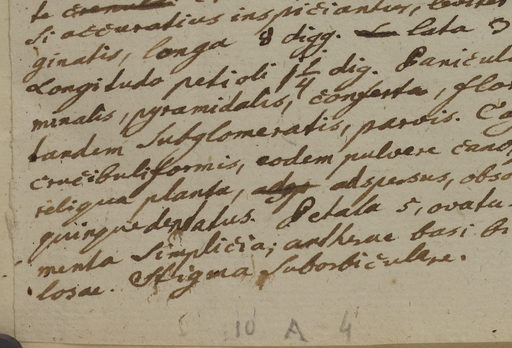 te
si accuratius inspiciantur, leviter
ginatis, longa 8 digg. lata 3
Longitudo petioli 1 1/4 dig. Panicula
minalis, pyramidalis, conferta, flo
tandem subglomeratis, parvis. Ca
crucibuliformis, eodem pulvere
reliqua planta, adspersus, obso
quinquedentatus. Petala 5, ovata
menta simplicia; antherae basi bi
losae. Stigma suborbiculare.
10 A 4